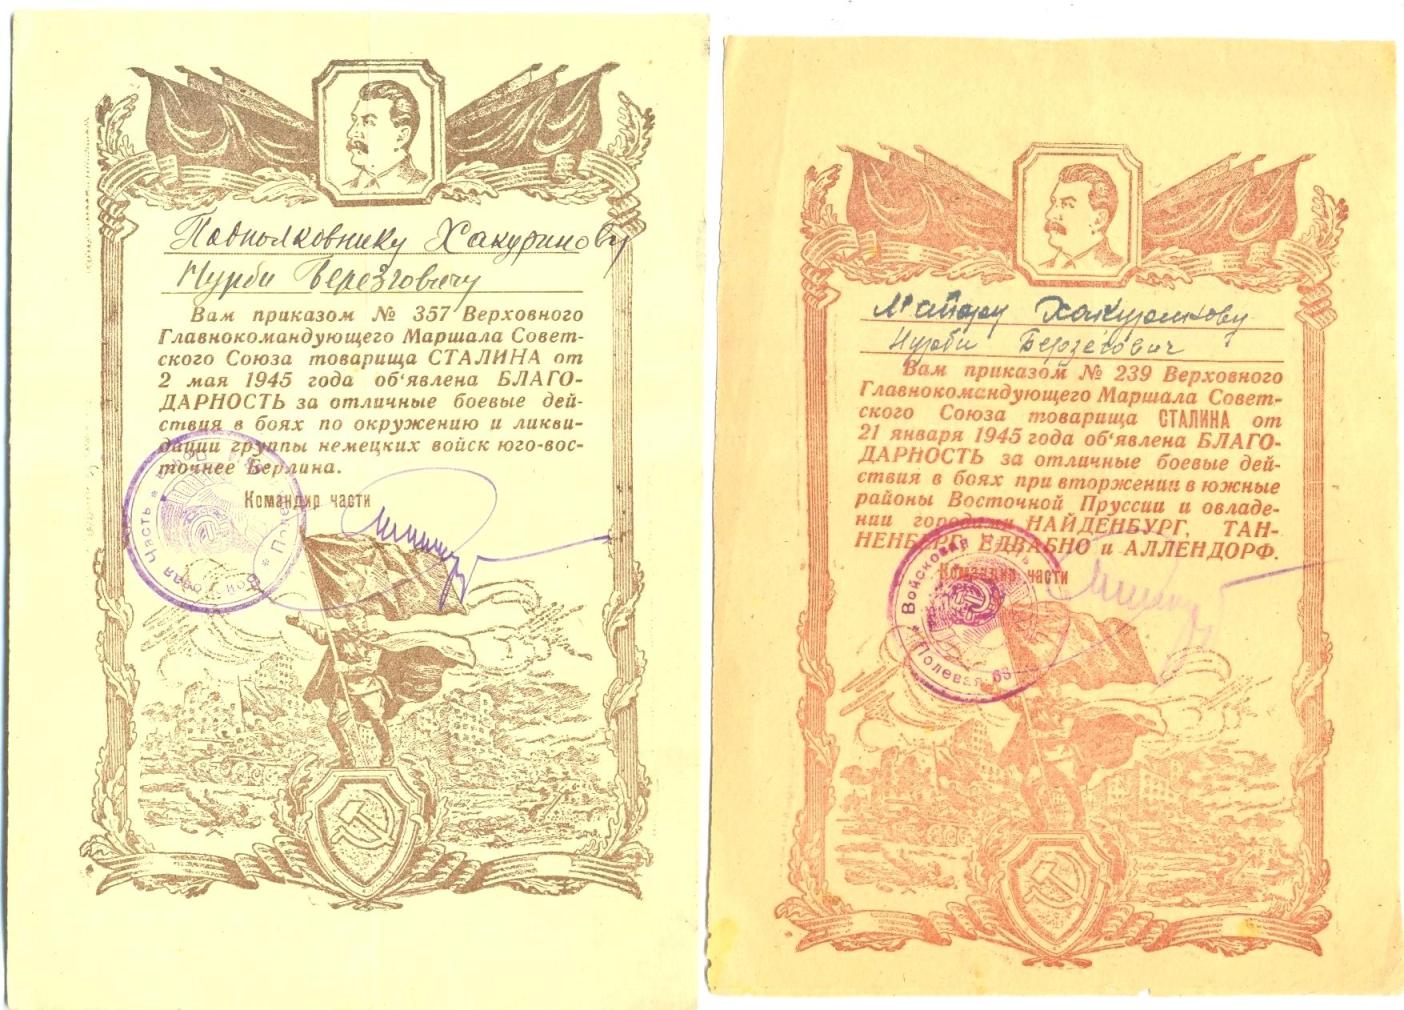 Подполковнику Хакуринову
Нурби Березговичу
Вам приказом № 357 Верховного
Главнокомандующего Маршала Совет-
ского Союза товарища СТАЛИНА от
2 мая 1945 года об‘явлена БЛАГО-
ДАРНОСТЬ за отличные боевые дей-
ствия в боях по окружению и ликви-
дации группы немецких войск юго-вос-
точнее Берлина.
Командир части
Майору Хакуринову
Нурби Берзегович
Вам приказом № 239 Верховного
Главнокомандующего Маршала Совет-
ского Союза товарища СТАЛИНА от
21 января 1945 года об‘явлена БЛАГО-
ДАРНОСТЬ за отличные боевые дей-
ствия в боях при вторжении в южные
районы Восточной Пруссии и овладе-
нии городами НАЙДЕНБУРГ, ТАН-
НЕНБУРГ, ЕДВАБНО и АЛЛЕНДОРФ.
Командир части
Войсковая часть
Полевая